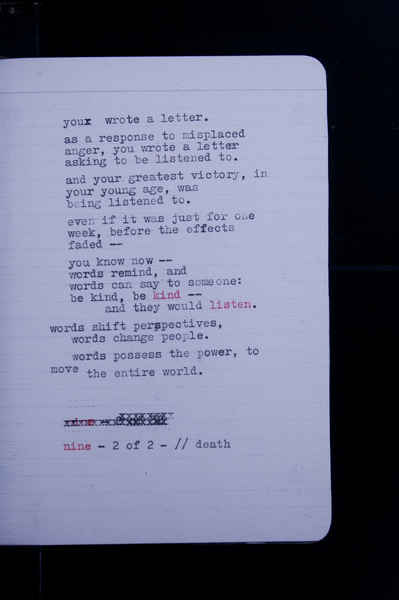 you wrote a letter.
as a response to misplaced
anger, you wrote a letter
asking to be listened to.
and your greatest victory, in
your young age, was
being listened to.
even if it was just for one
week, before the effects
faded --
you know now --
words remind, and
words can say to someone:
be kind, be kind --
and they would listen.
words shift perspectives,
words change people.
words possess the power, to
move the entire world.
nine - 2 of 2 - // death